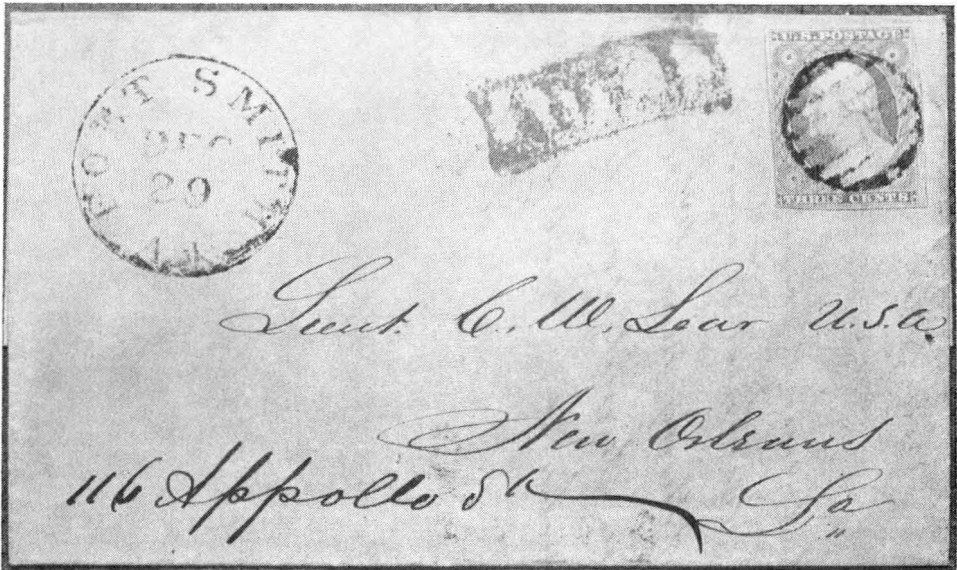 FORT SMITH
DEC
29
U.S. POSTAGE
THREE CENTS
Lieut. C. W. Lear U.S.A.
New Orleans
116 Appollo St
La